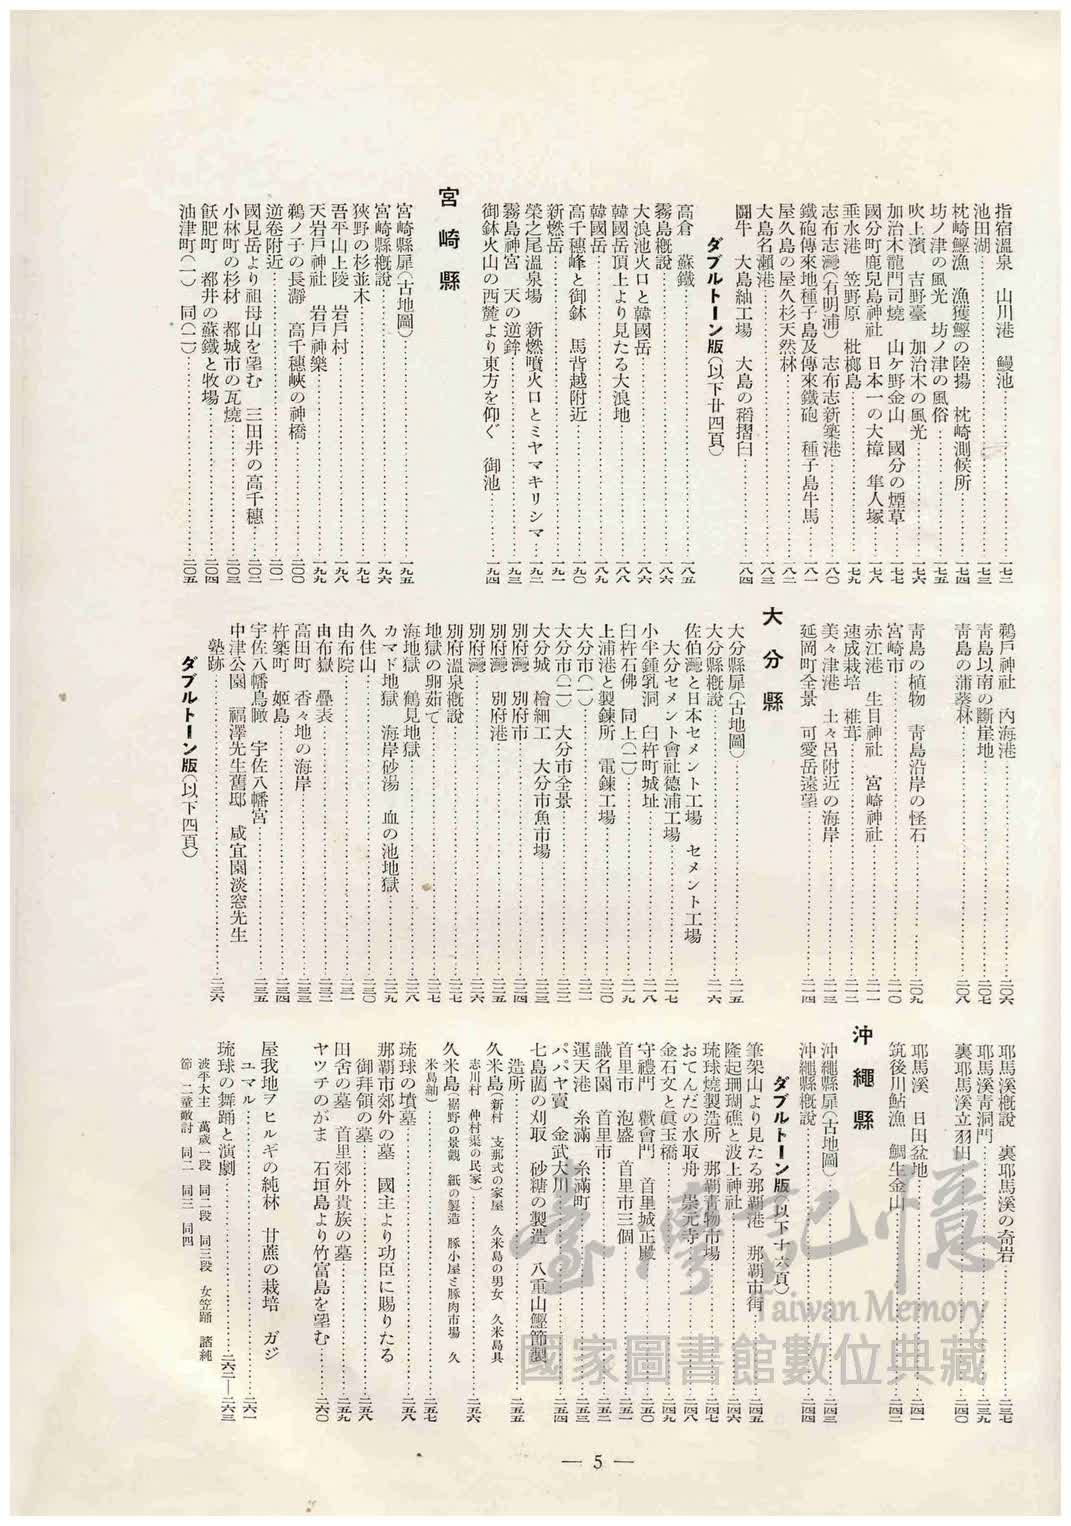 指宿溫泉　山川港　鰻池……一七二
池田湖……一七三
枕崎鰹漁　漁獲鰹の陸揚　枕崎測候所……一七四
坊ノ津の風光　坊ノ津の風俗……一七五
吹上濱　吉野臺　加治木の風光……一七六
加治木龍門司燒　山ヶ野金山　國分の煙草……一七七
國分町鹿兒島神社　日本一の大樟　隼人塚……一七八
垂水港　笠野原　枇榔島……一七九
志布志灣(有明浦)　志布志新築港……一八〇
鐵砲傳來地種子島及傳來鐵砲　種子島牛馬……一八一
屋久島の屋久杉天然林……一八二
大島名瀨港……一八三
鬪牛　大島紬工場　大島の稻摺臼……一八四
ダブルトーン版(以下廿四頁)
高倉　蘇鐵……一八五
霧島槪說……一八六
大浪池火口と韓國岳……一八六
韓國岳頂上より見たる大浪地……一八八
韓國岳……一八九
高千穗峰と御鉢　馬背越附近……一九〇
新燃岳……一九一
榮之尾溫泉場　新燃噴火口とミヤマキリシマ……一九二
霧島神宮　天の逆鉾……一九三
御鉢火山の西麓より東方を仰ぐ　御池……一九四
宮崎縣
宮崎縣扉(古地圖)……一九五
宮崎縣槪說……一九六
狹野の杉並木……一九七
吾平山上陵　岩戶村……一九八
天岩戶神社　岩戶神樂……一九九
鵜ノ子の長瀞　高千穗峽の神橋……二〇〇
逆卷附近……二〇一
國見岳より祖母山を望む　三田井の高千穗……二〇二
小林町の杉材　都城市の瓦燒……二〇三
飫肥町　都井の蘇鐵と牧場……二〇四
油津町(一)　同(二)……二〇五
鵜戶神社　內海港……二〇六
靑島以南の斷崖地……二〇七
靑島の蒲葵林……二〇八
靑島の植物　靑島沿岸の怪石……二〇九
宮崎市……二一〇
赤江港　生目神社　宮崎神社……二一一
速成栽培　椎茸……二一二
美々津港　土々呂附近の海岸……二一三
延岡町全景　可愛岳遠望……二一四
大分縣
大分縣扉(古地圖)……二一五
大分縣槪說……二一六
佐伯灣と日本セメント工場　セメント工場
大分セメント會社德浦工場……二一七
小半鍾乳洞　臼杵町城址……二一八
臼杵石佛　同上(二)……二一九
上浦港と製鍊所　電鍊工場……二二〇
大分市(一)……二二一
大分市(二)　大分市全景……二二二
大分城　檜細工　大分市魚市場……二二三
別府灣　別府市……二二四
別府灣　別府港……二二五
別府灣……二二六
別府溫泉槪說……二二七
地獄の卵茹て……二二七
海地獄　鶴見地獄……二二八
カマド地獄　海岸砂湯　血の池地獄……二二九
久住山……二三〇
由布院……二三一
由布嶽　疊表……二三二
高田町　香々地の海岸……二三三
杵築町　姬島……二三四
宇佐八幡鳥瞰　宇佐八幡宮……二三五
中津公園　福澤先生舊邸　咸宜園淡窓先生
塾跡……二三六
ダブルトーン版(以下四頁)
耶馬溪槪說　裏耶馬溪の奇岩……二三七
耶馬溪靑洞門……二三九
裏耶馬溪立羽田……二四〇
耶馬溪　日田盆地……二四一
筑後川鮎漁　鯛生金山……二四二
沖繩縣
沖繩縣扉(古地圖)……二四三
沖繩縣槪說……二四四
ダブルトーン版(以下十六頁)
筆架山より見たる那覇港　那覇市街……二四五
隆起珊瑚礁と波上神社……二四六
琉球燒製造所　那覇靑物市場……二四七
おてんだの水取舟　崇元寺……二四八
金石文と眞玉橋……二四九
守禮門　歡會門　首里城正殿……二五〇
首里市　泡盛　首里市三個……二五一
識名園　首里市……二五二
運天港　糸滿　糸滿町……二五三
パパヤ賣　金武大川……二五四
七島藺の刈取　砂糖の製造　八重山鰹節製
造所……二五五
久米島(新村　支那式の家屋　久米島の男女　久米島具
志川村　仲村渠の民家)……二五六
久米島(裾野の景觀　紙の製造　豚小屋と豚肉市場　久
米島紬)……二五七
琉球の墳墓……二五八
那覇市郊外の墓　國主より功臣に賜りたる
御拜領の墓……二五八
田舍の墓　首里郊外貴族の墓……二五九
ヤツチのがま　石垣島より竹富島を望む……二六〇
屋我地ヲヒルギの純林　甘蔗の栽培　ガジ
ユマル……二六一
琉球の舞踊と演劇……二六二—二六三
波平大主　萬歲一段　同二段　同三段　女笠踊　諸純
節　二童敵討　同二　同三　同四
— 5 —
臺灣記憶
Taiwan Memory
國家圖書館數位典藏